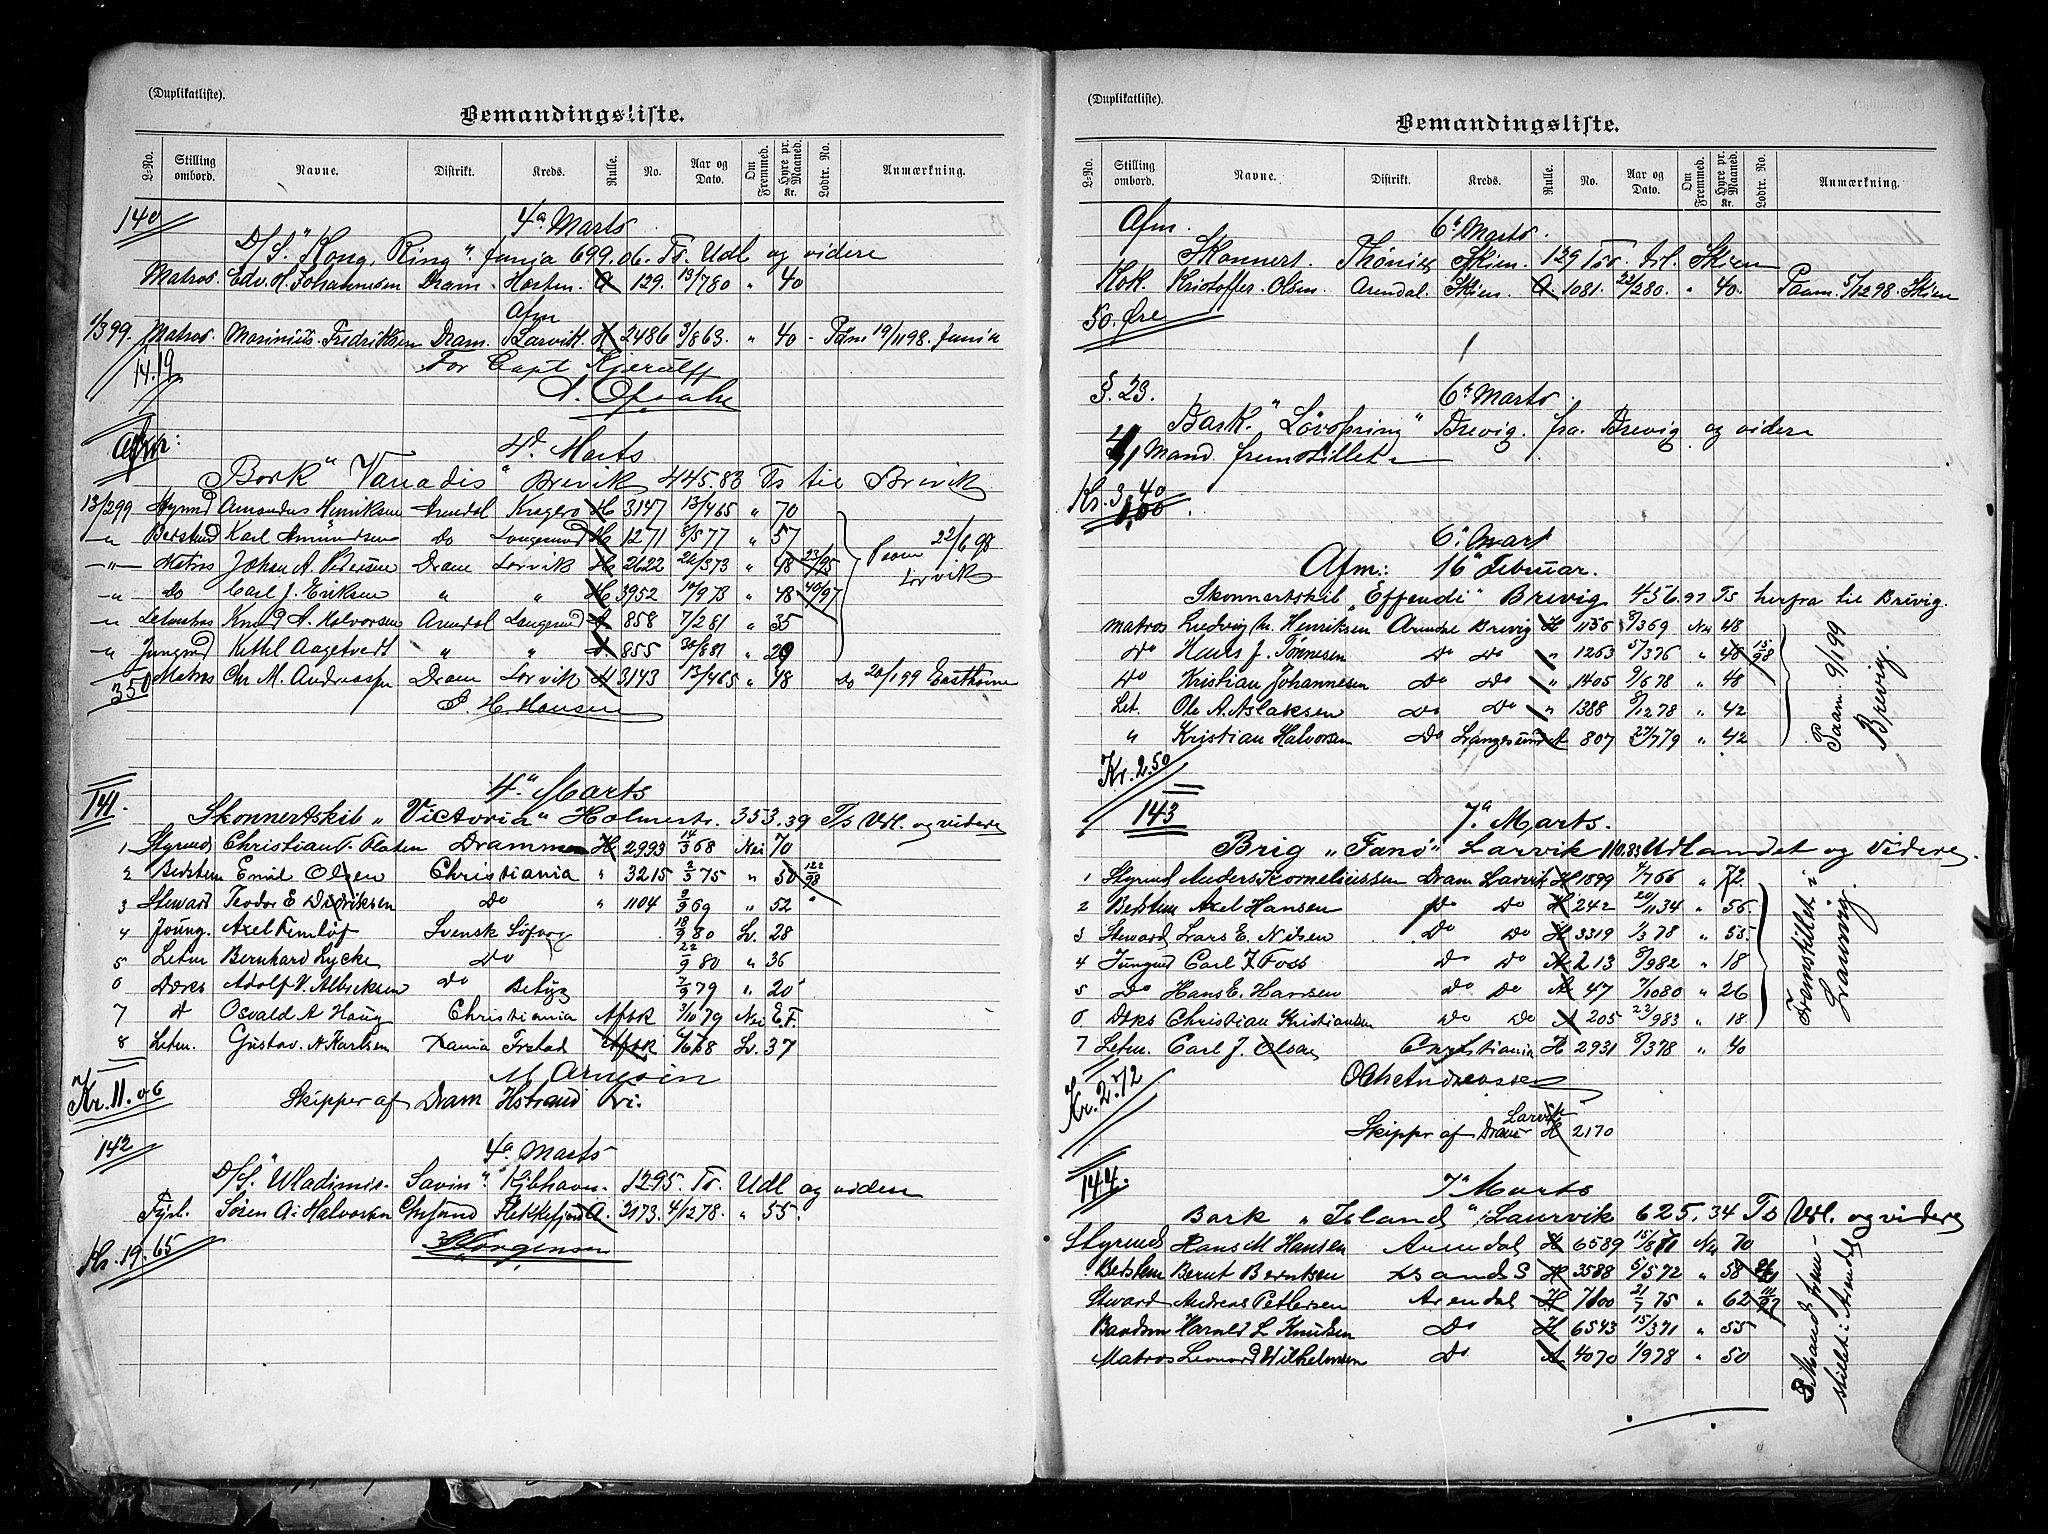 (Duplikatliste).
Bemandingsliste.
L-No. Stilling ombord. Navne. Distrikt. Kreds. Rulle. No. Aar og Dato. Om Fremmed. Hyre pr. Maaned. Kr. Lodtr. No. Anmærkning.
140 4a Marts
D/S. "Kong Ring" 699.06. Tr. Udl og videre
Matros. Edv. H. Johannesen Dram. Horten. A 129. 13/780 " 40
Afm
1/3 99. Matros. Marinius Fredriksen Dram. Larvik H 2486 3/863. " 40 - 19/11 98.
14.19 For Capt Kjerulff
Afm: 4d Marts
Bark "Vanadis" Brevik 445.83 Ts til Brevik
13/299 Styrmd Amandus Henriksen Arendal Kragerø H 3147 13/465 " 70
-"- Bedstmd Karl Amundsen do Langesund H 1271 8/577 " 57 22/6 98
-"- Matros Johan A. Petersen Dram Larvik H 2622 26/373 " 48 23/95 Larvik
-"- Do Carl J. Eriksen " " H 3952 10/973 " 48 40/97
-"- Letmatros Knud A. Halvorsen Arendal Langesund A 858 7/281 " 35
-"- Jungmd Kittel Aagetvedt " " A. 855 20/881 " 29
Matros Chr M. Andreasen Dram Larvik H 3143 13/465 " 48 do 20/199
350 H. Hansen
141. 4." Marts
Skonnertskib "Victoria" Holmestr. 353.39 Ts Udl. og videre
1 Styrmd Christian F. Floten Drammen H 2993 14/3 68 Nei 70
2 Bedstem Emil Olsen Christiania " 3215 2/3 75 " 50 122/98
3 Steward Teodor E Didriksen Do " 1104 2/9 69 " 52 "
4 Joung. Axel Svensk 18/9 80 Sv. 28
5 Letm Bernhard Lycke Do 22/9 80 " 36
6 Dæks Adolf V. Do 7/9 79 " 20
7 d Osvald A Haug Christiania Afsk 3/10 79 Nei E.F.
8 Letm. Gustav A Karlsen 6/6 68 Sv. 37
M Arnesen
Kr. 11.06 Skipper af Dram
142 4a Marts
D/S. "Wladimir Savin" Kjbhavn. 1295. Tr. Udl og videre
Fyrb. Sören A. Halvorsen Chrsand Flekkefjord A. 2173. 4/1278. " 55.
Kr. 19.65 Jörgensen
(Duplikatliste).
Bemandingsliste.
L-No. Stilling ombord. Navne. Distrikt. Kreds. Rulle. No. Aar og Dato. Om Fremmed. Hyre pr. Maaned. Kr. Lodtr. No. Anmærkning.
Afm. 6te Marts.
Skonnert. Skien. 129 Tr. til Skien
Kok. Kristoffer. Olsen. Arendal. Skien. A 1081. 22/280. " 40. Paam. 5/1298. Skien
50. Øre
§. 23. 6te Marts.
Bark. "Lövspring" Brevig. fra Brevig og videre
Mand. fremstillet
Kr. 3.40
6te Mart
Afm: 16de Februar.
Skonnertskib "Effendi" Brevig 456.97 Ts herfra til Brevig.
Matros Ludvig M. Henriksen Arendal Brevig H 1156 8/369 Nei 48
Do Hans J. Tönnesen Do Do " 1263 5/376 " 48 15/98
Do Kristian Johannesen Do Do " 1405 9/678 " 48
Let. Ole A. Aslaksen Do Do " 1388 8/1278 " 42
" Kristian Halvorsen Do Langesund A 807 27/779 " 42
Paam. 9/199 Brevig.
Kr. 2.50
143 7a Marts.
Brig "Fanö" Larvik 110.83 Udlandet og videre.
1 Styrmd Anders Korneliussen Dram Larvik H 1899 4/766 " 72.
2 Bedstem Axel Hansen Do Do H 242 20/1134 " 56.
3 Steward Lars E. Nilsen Do Do H 3319 1/378 " 55.
4 Jungmd Carl J. Foss Do Do A 213 8/982 " 18
5 Do Hans E. Hansen Do Do A 47 7/1080 " 26
6 Dæks Christian Kristiansen Do Do A 205 23/983 " 18
7 Letm. Carl J. Olsen Christiania H 2931 8/378 " 40
Fremstillet i Laurvig.
Kr. 2.72 Ole Andreassen
Skipper af Dram Larvik H 2170
144. 7a Marts
Bark "Island" Laurvik 625.34 Ts Udl. og videre
Styrmd Hans M Hansen Arendal H 6589 15/871 Nei 70
Bedstem Bernt Berntsen Xsands H 3588 5/572 " 58
Steward Andreas Pettersen Arendal H 7100 21/7 75 " 62
Baadsm Harald L Knudsen Do H 6543 15/371 " 55
Matros Leonard Wilhelmsen Do A 4070 1/978 " 50
8 Mand fremstillet i Arendal